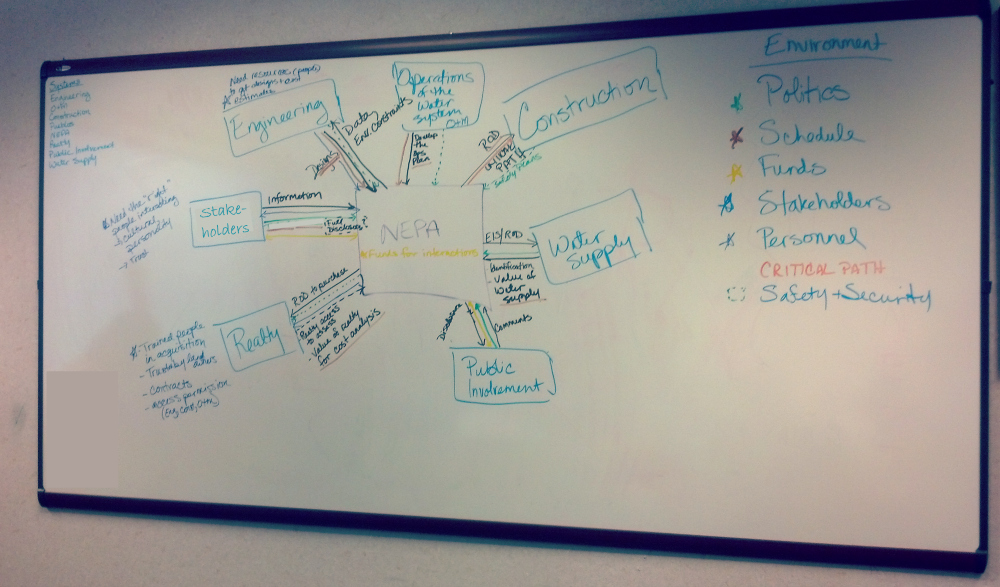 Systems
Engineering
O+M
Construction
NEPA
Realty
Public Involvement
Water Supply
Need resources (people)
to get designs and
estimates
Engineering
Design
Data
Env. Constraints
Operations
of the
Water
System
O+M
Develop
the
Ops
Plan
Construction
ROD
CRITICAL
PATH
Safety Plans
Need the "right"
people interacting
cultural
personality
→ Trust
Stake-
holders
Information
"Full
Disclosure"?
NEPA
Funds for interactions
EIS/ROD
Identification
- Value of
Water
Supply
Water
Supply
ROD to purchase
Realty access
to assess
- Value of realty
for cost analysis
Realty
Trained people
in acquisition
- contracts
- access permission
(Eng, Con, O+M)
Disclosure
Comments
Public
Involvement
Environment
Politics
Schedule
Funds
Stakeholders
Personnel
CRITICAL PATH
Safety + Security